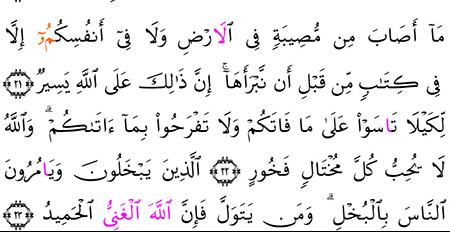 مَآ أَصَابَ مِن مُّصِيبَةٍ فِى ٱلَارْضِ وَلَا فِىٓ أَنفُسِكُمُۥٓ إِلَّا
فِى كِتَٰبٍ مِّن قَبْلِ أَن نَّبْرَأَهَآ إِنَّ ذَٰلِكَ عَلَى ٱللَّهِ يَسِيرٌ ٢١
لِّكَيْلَا تَاسَوْا۟ عَلَىٰ مَا فَاتَكُمْ وَلَا تَفْرَحُوا۟ بِمَآ ءَاتَىٰكُمْ ۗ وَٱللَّهُ
لَا يُحِبُّ كُلَّ مُخْتَالٍ فَخُورٍ ٢٢ ٱلَّذِينَ يَبْخَلُونَ وَيَامُرُونَ
ٱلنَّاسَ بِٱلْبُخْلِ ۗ وَمَن يَتَوَلَّ فَإِنَّ ٱللَّهَ ٱلْغَنِىُّ ٱلْحَمِيدُ ٢٣